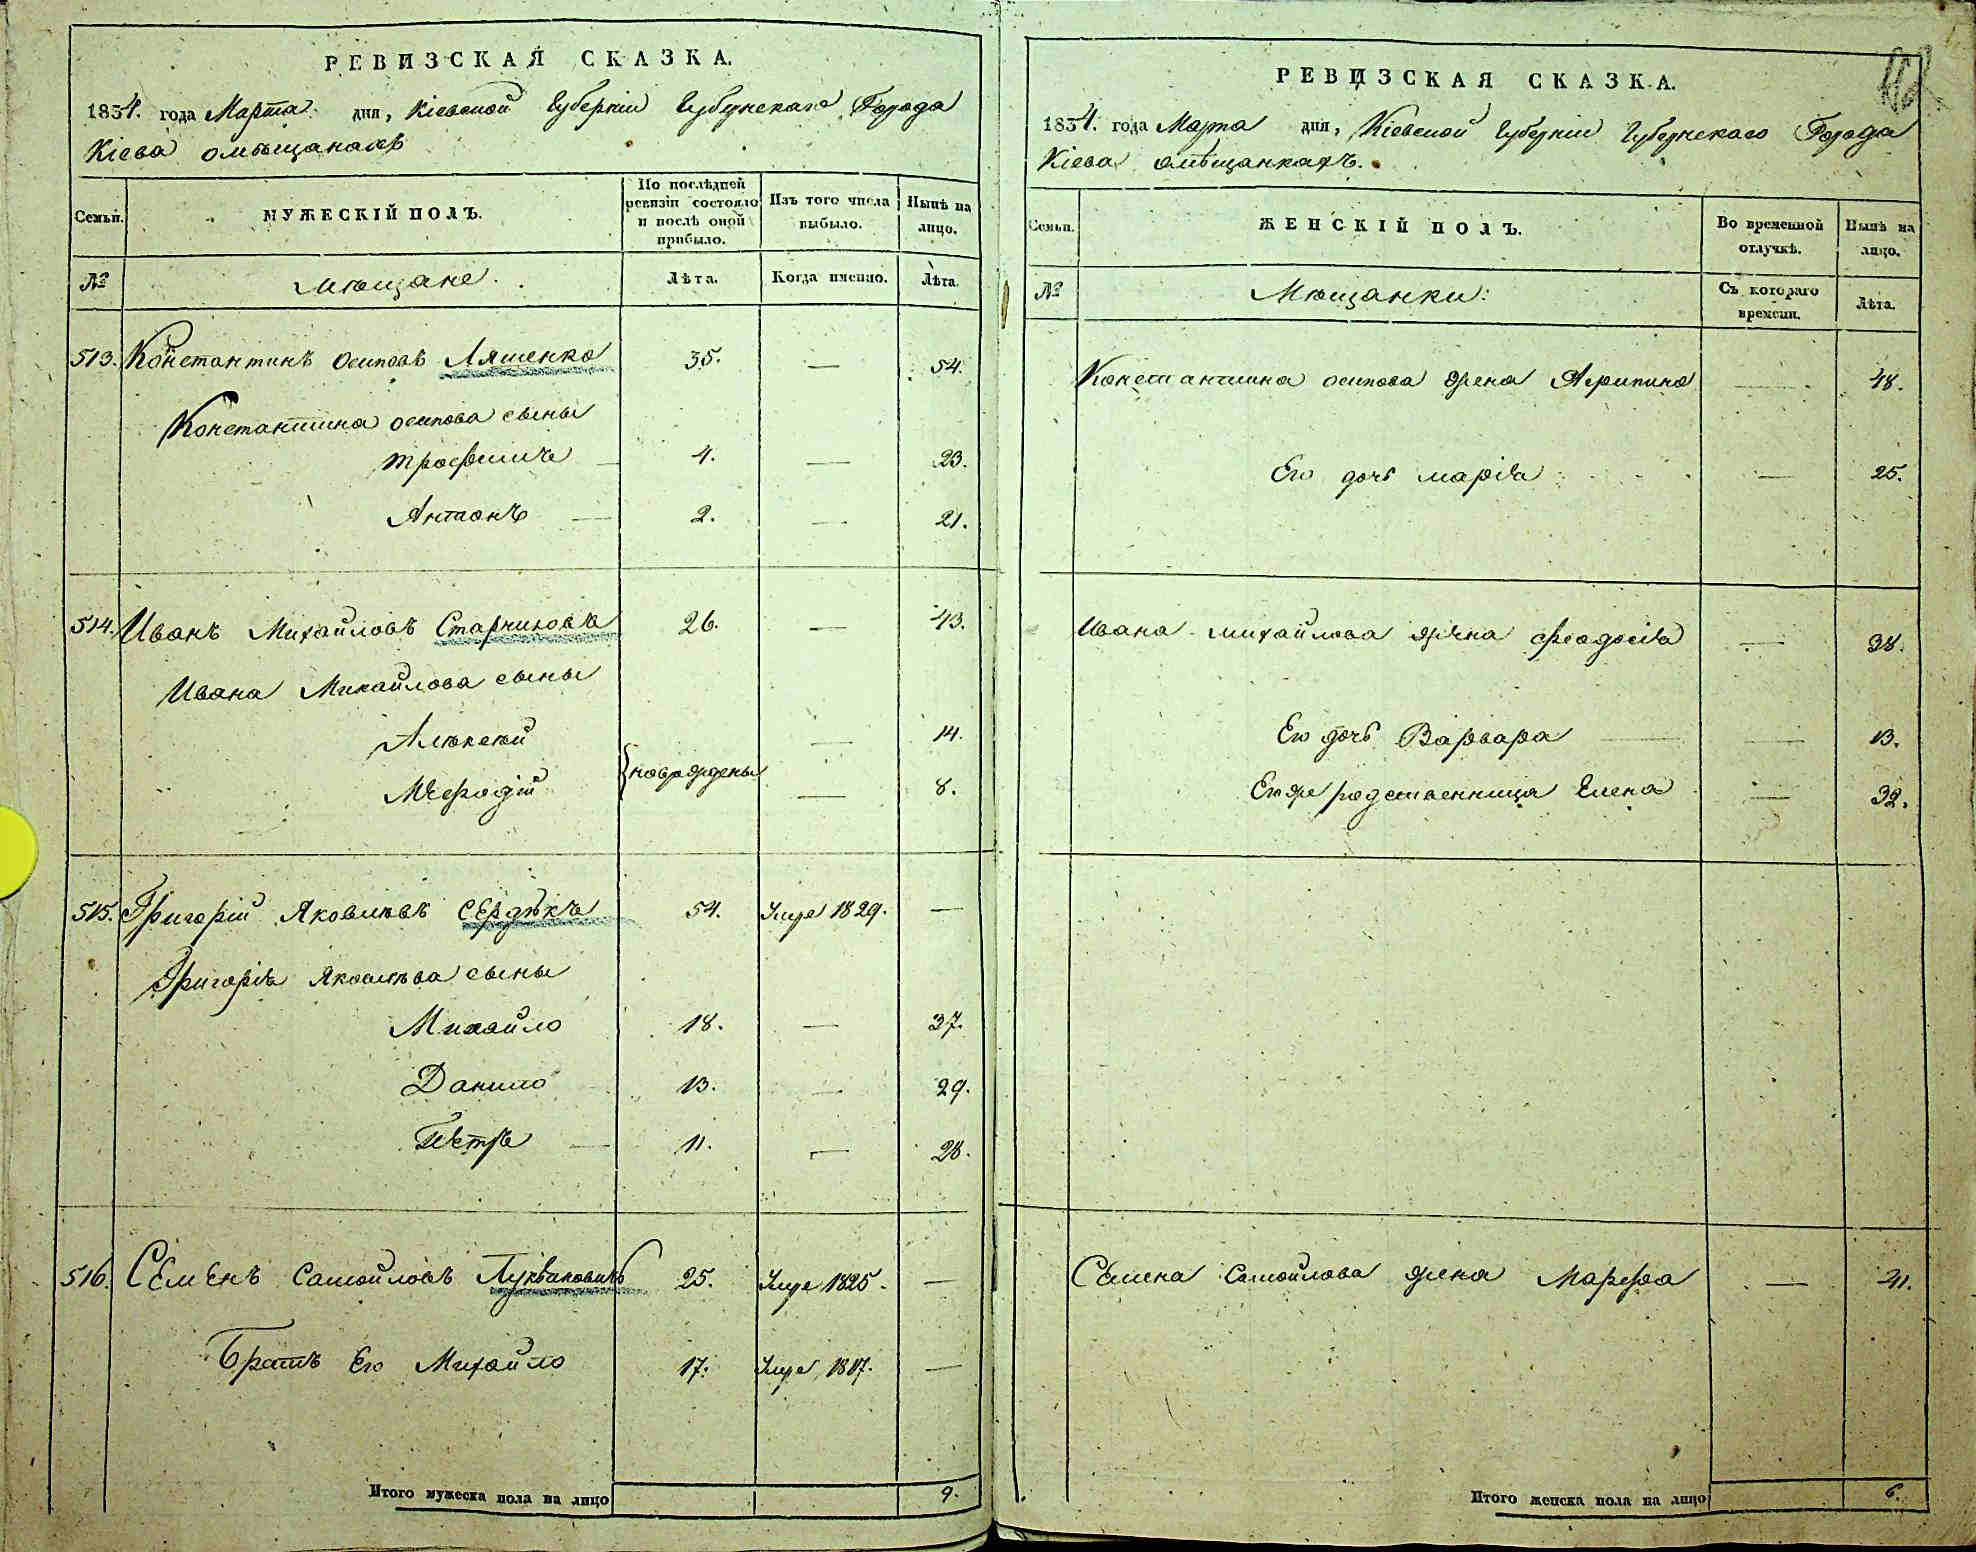 РЕВИЗСКАЯ СКАЗКА.
1834. года Марта дня, Кіевской Губерніи Губернскаго Города
Кіева омѣщанахъ
Семьи.
МУЖЕСКІЙ ПОЛЪ.
По послѣдней ревизіи состояло и послѣ оной прибыло.
Изъ того числа выбыло.
Нынѣ на лицо.
№
Мѣщане.
Лѣта.
Когда именно.
Лѣта.
513. Константинъ Осиповъ Ляшенко 35. — 54.
Константина осипова сыны
Трофимъ — 4. — 23.
Антонъ — 2. — 21.
514. Иванъ Михайловъ Старчиковъ 26. — 43.
Ивана Михайлова сыны
Алѣксѣй — 14.
новрождены
Мефодій — 8.
515. Григорій Яковлевъ Сердюкъ 54. Умре 1829. —
Григорія Яковлева сыны
Михайло 18. — 37.
Данило 13. — 29.
Петръ — 11. — 28.
516. Семенъ Самойловъ 25. Умре 1825. —
Братъ Его Михайло 17. Умре 1817. —
Итого мужеска пола на лицо 9.
РЕВИЗСКАЯ СКАЗКА.
1834. года Марта дня, Кіевской Губерніи Губернскаго Города
Кіева омѣщанкахъ.
Семьи.
ЖЕНСКІЙ ПОЛЪ.
Во временной отлучкѣ.
Нынѣ на лицо.
№
Мѣщанки:
Съ котораго времени.
Лѣта.
Константина осипова жена Агрипина — 48.
Его дочь марія — 25.
Ивана михайлова жена феодосія — 38.
Его дочь Варвара — 13.
Егоже родственница Елена — 32.
Семена Самойлова жена Марфа — 41.
Итого женска пола на лицо 6.